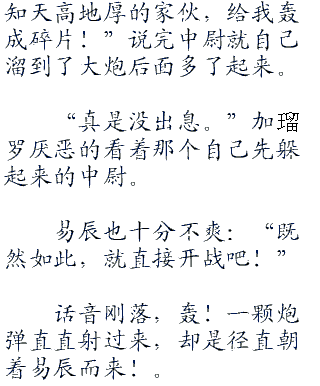 知天高地厚的家伙，给我轰
成碎片！”说完中尉就自己
溜到了大炮后面多了起来。
“真是没出息。”加瑠
罗厌恶的看着那个自己先躲
起来的中尉。
易辰也十分不爽：“既
然如此，就直接开战吧！”
话音刚落，轰！一颗炮
弹直直射过来，却是径直朝
着易辰而来！。